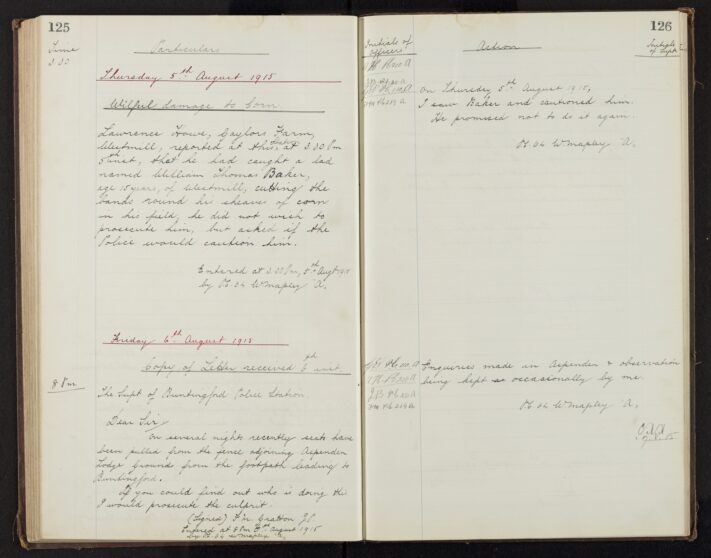 125
Time
3.30
Particulars
Thursday 5th August 1915
Wilful damage to Corn.
Lawrence Howe, Gaylors Farm,
Westmill, reported at this Station at 3.30 Pm
5th inst, that he had caught a lad
named William Thomas Baker,
age 15 years, of Westmill, cutting the
bands round his sheaves of corn
in his field, he did not wish to
prosecute him, but asked if the
Police would caution him.
Entered at 3.30 Pm, 5th Augt 1915
by Pc 64 W Mapley A.
Friday 6th August 1915
Copy of Letter received 6th inst.
8 Pm
The Supt of Buntingford Police Station.
Dear Sir,
On several nights recently seats have
been pulled from the fence adjoining Aspenden
Lodge grounds from the footpath leading to
Buntingford.
If you could find out who is doing the
I would prosecute the culprit.
(Signed) F. M. Gratton J.P.
Entered at 8 Pm 6th August 1915
by Pc 64 W Mapley A,
126
Initials of
officers
Action
Initials
of Supt
On Thursday 5th August 1915,
I saw Baker and cautioned him.
He promised not to do it again.
Pc 64 W Mapley A,
Enquiries made in Aspenden & observation
being kept occasionally by me.
Pc 64 W Mapley A,